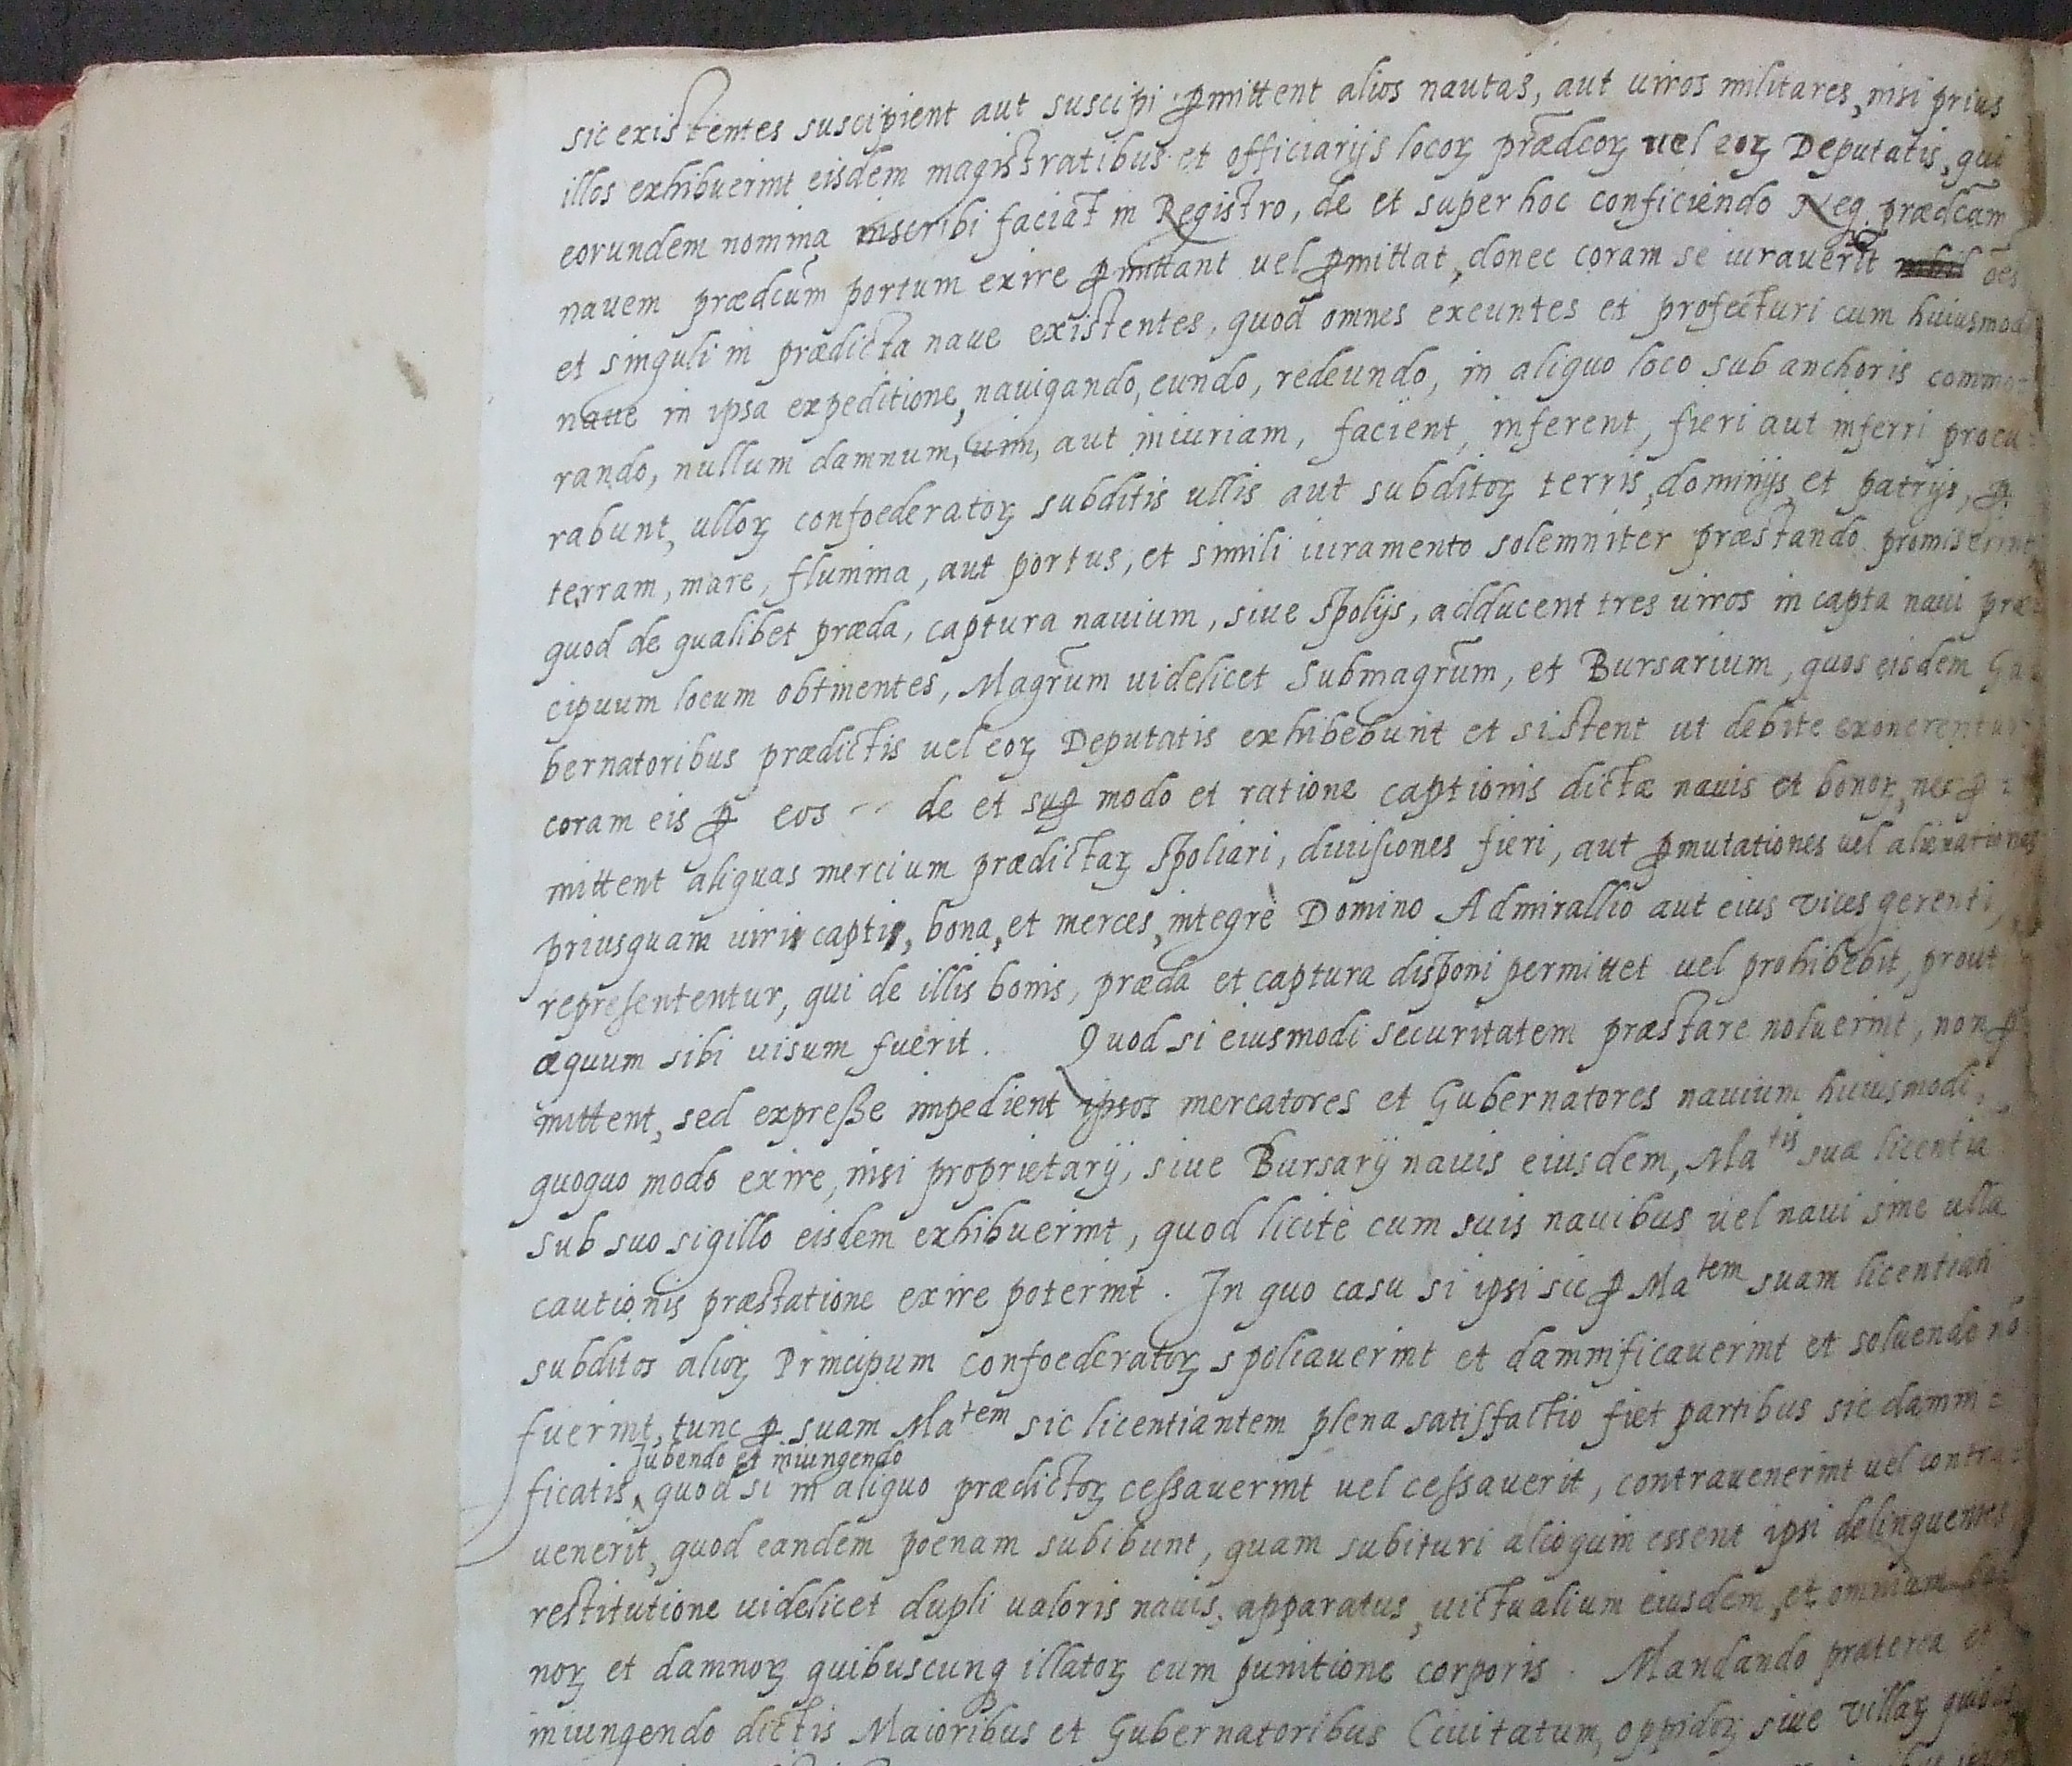 sic existentes suscipient aut suscipi ꝑmittent alios nautas, aut uiros militares, nisi prius
illos exhibuerint eisdem magistratibus et officiarijs locoꝝ prædcoꝝ uel eoꝝ Deputatis, qui
eorundem nomina inscribi faciāt in Registro, de et super hoc conficiendo Neq. prædcam
nauem prædcum portum exire ꝑmittant uel ꝑmittat, donec coram se iurauerit oēs
et singuli in prædicta naue existentes, quod omnes exeuntes et profecturi cum huiusmodi
naue in ipsa expeditione, nauigando, eundo, redeundo, in aliquo loco sub anchoris commo-
rando, nullum damnum, uim, aut iniuriam, facient, inferent, fieri aut inferri procu-
rabunt, ulloꝝ confoederatoꝝ subditis ullis aut subditoꝝ terris, dominijs et patrijs, ꝑ
terram, mare, flumina, aut portus, et simili iuramento solemniter præstando promiserint,
quod de qualibet præda, captura nauium, siue spolijs, adducent tres uiros in capta naui præ-
cipuum locum obtinentes, Magrum uidelicet Submagrum, et Bursarium, quos eisdem Gu
bernatoribus prædictis uel eoꝝ Deputatis exhibebunt et sistent ut debite exonerentur
coram eis ꝑ eos de et suꝑ modo et ratione captionis dictæ nauis et bonoꝝ, nec ꝑ-
mittent aliquas mercium prædictaꝝ spoliari, diuisiones fieri, aut ꝑmutationes uel alienationes
priusquam uiri capti, bona, et merces, integrè Domino Admirallio aut eius vices gerenti,
represententur, qui de illis bonis, præda et captura disponi permittet uel prohibebit, prout
æquum sibi uisum fuerit. Quod si eiusmodi securitatem præstare noluerint, non ꝑ
mittent, sed expreße impedient ipsos mercatores et Gubernatores nauium huiusmodi,
quoquo modo exire, nisi proprietarij, siue Bursarij nauis eiusdem, Ma^tis suæ licentia
sub suo sigillo eisdem exhibuerint, quod licitè cum suis nauibus uel naui sine ulla
cautionis præstatione exire poterint. In quo casu si ipsi sic ꝑ Ma^tem suam licentiati
subditos alioꝝ Principum confoederatoꝝ spoliauerint et damnificauerint et soluendo nō
fuerint, tunc ꝑ suam Ma^tem sic licentiantem plena satisfactio fiet partibus sic damni=
Jubendo et iniungendo
ficatis, quod si in aliquo prædictoꝝ cessauerint uel cessauerit, contrauenerint uel contra=
uenerit, quod eandem poenam subibunt, quam subituri alioquin essent ipsi delinquentes
restitutione uidelicet dupli ualoris nauis, apparatus, uictualium eiusdem, et omnium bo
noꝝ et damnoꝝ quibuscunq illatoꝝ cum punitione corporis. Mandando præterea et
iniungendo dictis Maioribus et Gubernatoribus Ciuitatum, oppidoꝝ siue villaꝝ